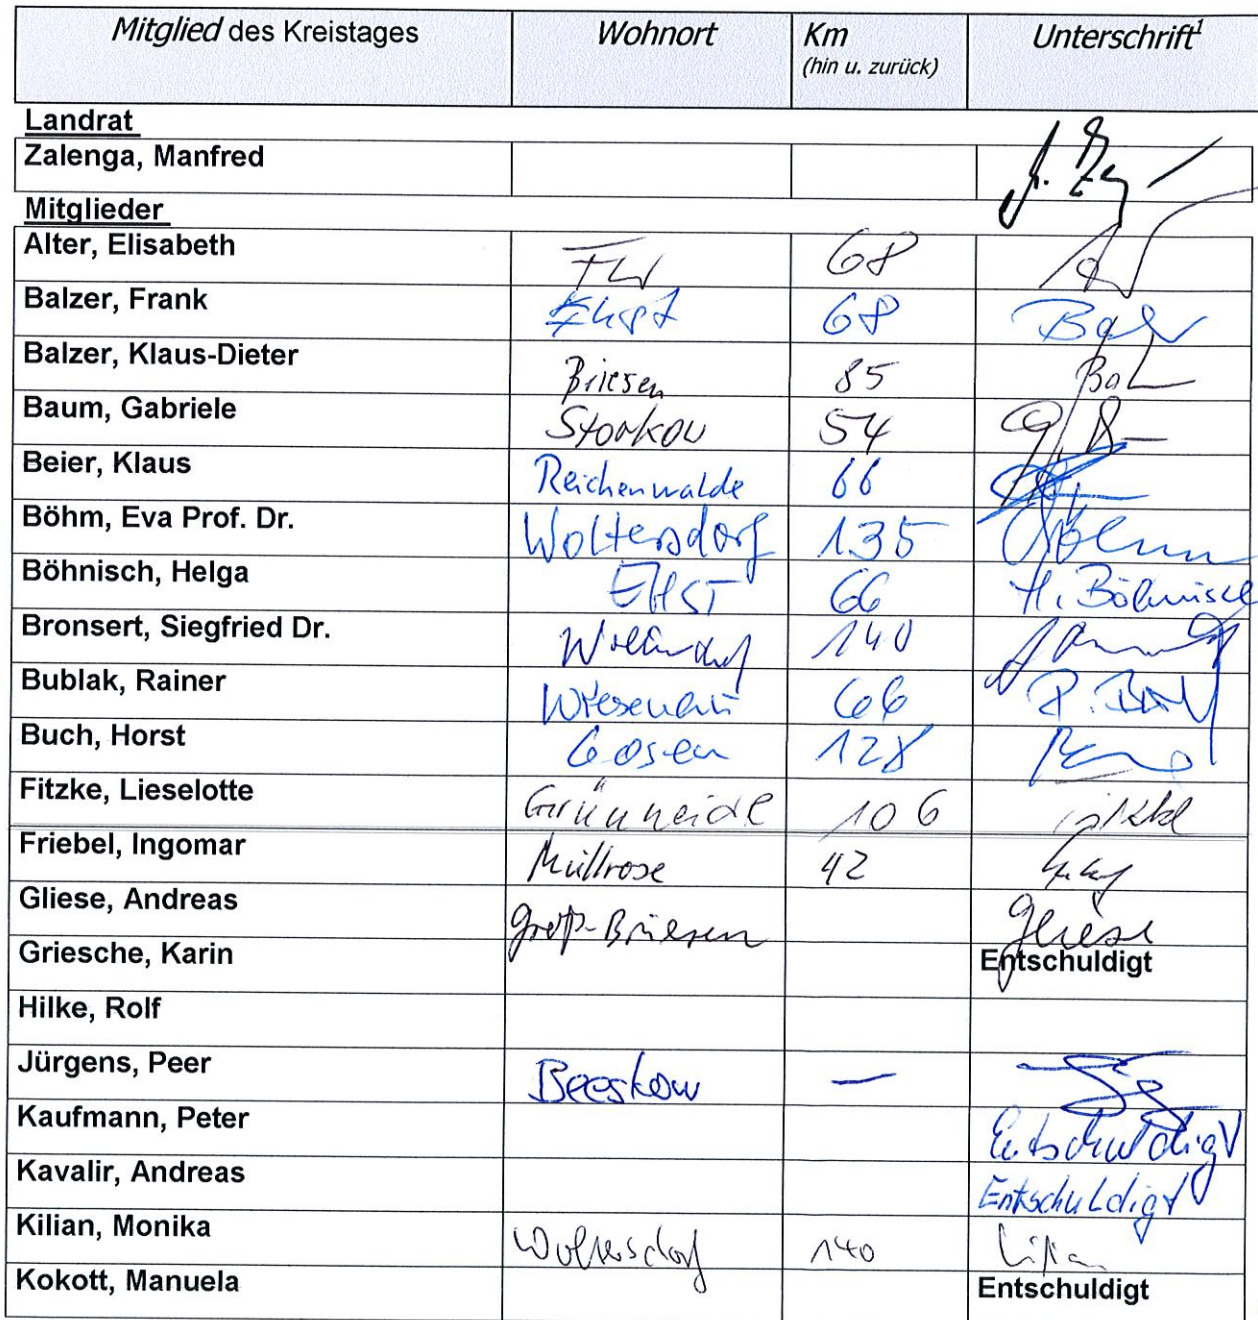 Mitglied des Kreistages Wohnort Km Unterschrift¹
(hin u. zurück)
Landrat
Zalenga, Manfred
Mitglieder
Alter, Elisabeth FW 68
Balzer, Frank Ehst 68
Balzer, Klaus-Dieter Briesen 85
Baum, Gabriele Storkow 54
Beier, Klaus Reichenwalde 66
Böhm, Eva Prof. Dr. Woltersdorf 135 Böhm
Böhnisch, Helga EHST 66 H. Böhnisch
Bronsert, Siegfried Dr. Woltersdorf 140
Bublak, Rainer Wiesenau 66
Buch, Horst Gosen 128
Fitzke, Lieselotte Grünheide 106
Friebel, Ingomar Müllrose 42
Gliese, Andreas Groß-Briesen Gliese
Griesche, Karin Entschuldigt
Hilke, Rolf
Jürgens, Peer Beeskow —
Kaufmann, Peter Entschuldigt
Kavalir, Andreas Entschuldigt
Kilian, Monika Woltersdorf 140 Kilian
Kokott, Manuela Entschuldigt